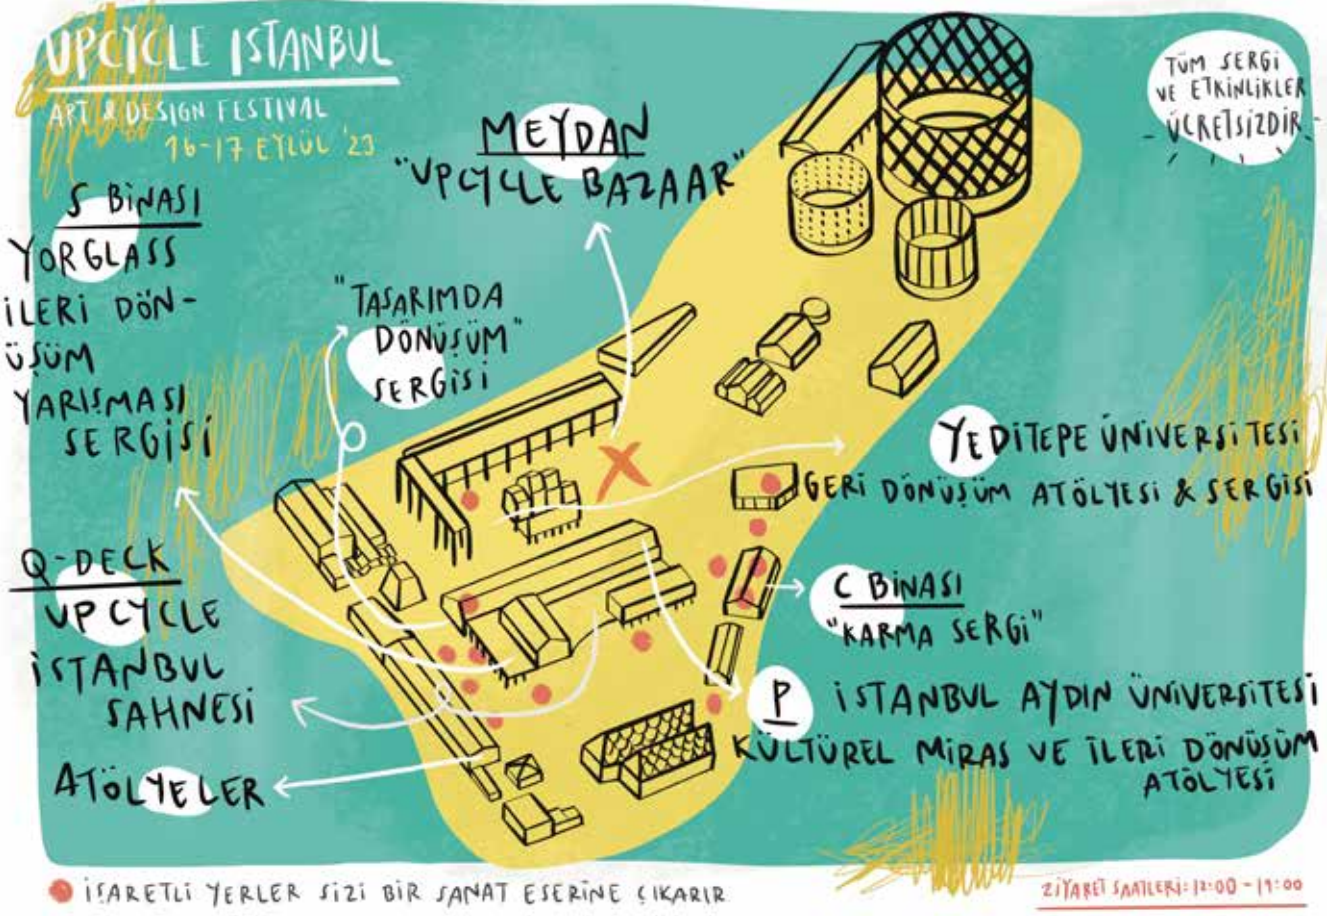 UPCYCLE ISTANBUL
ART & DESIGN FESTIVAL
16-17 EYLÜL '23
TÜM SERGİ
VE ETKİNLİKLER
ÜCRETSİZDİR
MEYDAN
"UPCYCLE BAZAAR"
S BİNASI
YORGLASS
İLERİ DÖN-
ÜŞÜM
YARIŞMASI
SERGİSİ
"TASARIMDA
DÖNÜŞÜM"
SERGİSİ
YEDİTEPE ÜNİVERSİTESİ
GERİ DÖNÜŞÜM ATÖLYESİ & SERGİSİ
Q-DECK
UPCYCLE
İSTANBUL
SAHNESİ
C BİNASI
"KARMA SERGİ"
P
İSTANBUL AYDIN ÜNİVERSİTESİ
KÜLTÜREL MİRAS VE İLERİ DÖNÜŞÜM
ATÖLYESİ
ATÖLYELER
X
İŞARETLİ YERLER SİZİ BİR SANAT ESERİNE ÇIKARIR
ZİYARET SAATLERİ: 12:00 - 19:00